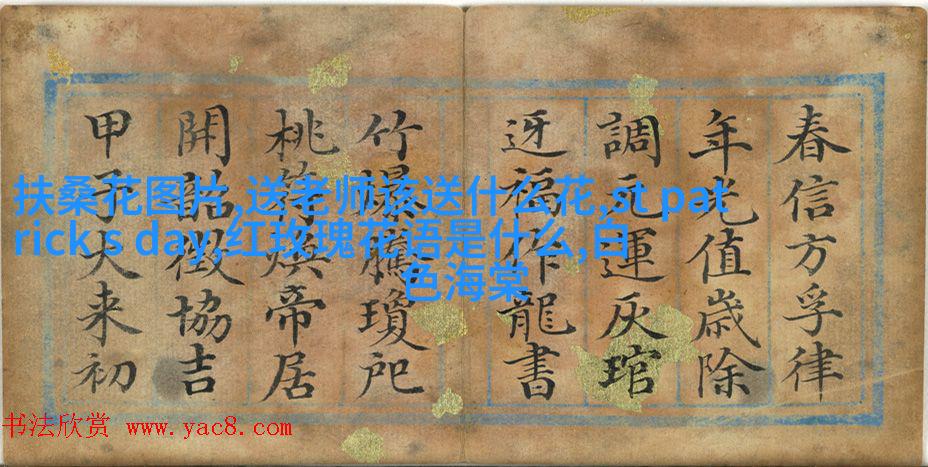 春信方孚律
年光值歲除
調元運灰琯
迓福作龍書
竹爆騰瓊戺
桃符煥帝居
開韶徵協吉
甲子大来初
扶桑花图片,送老师该送什么花,st pat
rick s day,红玫瑰花语是什么,白
色海棠
书法欣赏 www.yac8.com